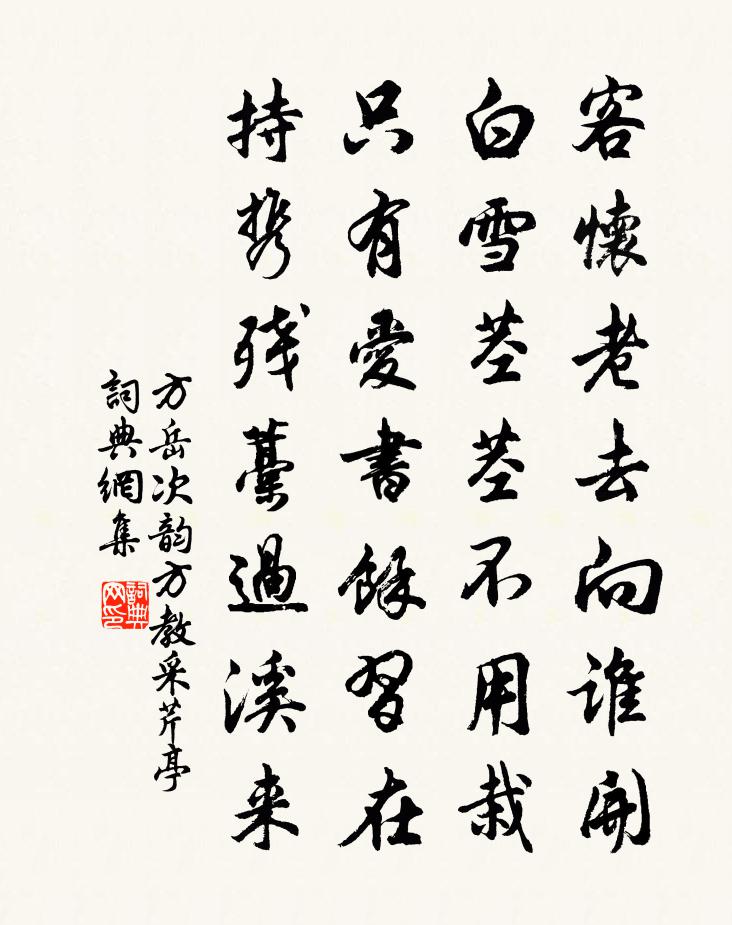 客懷老去向誰開
白雪莖莖不用栽
只有愛書餘習在
持携殘藁過溪来
方岳次韵方教采芹亭
詞典網集
詞典网印